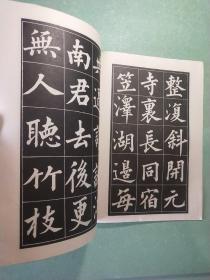 整復斜開元
寺裏長同宿
笠澤湖邊每
南君去後更
無人聽竹枝